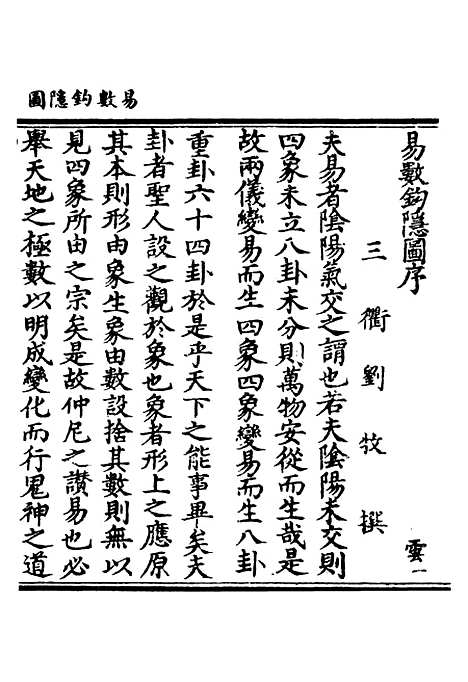 易數鈎隱圖
易數鈎隱圖序
三衢劉牧撰
雲一
夫易者陰陽氣交之謂也若夫陰陽未交則
四象未立八卦未分則萬物安從而生哉是
故兩儀變易而生四象四象變易而生八卦
重卦六十四卦於是乎天下之能事畢矣夫
卦者聖人設之觀於象也象者形上之應原
其本則形由象生象由數設捨其數則無以
見四象所由之宗矣是故仲尼之讚易也必
舉天地之極數以明成變化而行鬼神之道